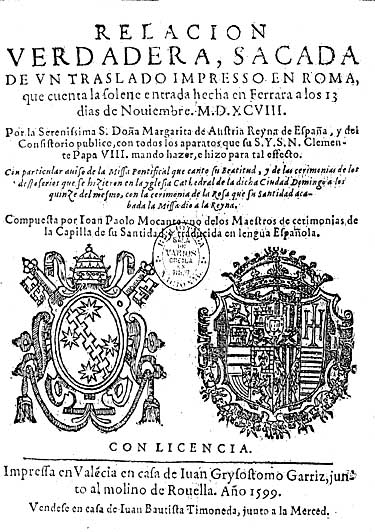 RELACION
VERDADERA, SACADA
DE VN TRASLADO IMPRESSO EN ROMA,
que cuenta la solene entrada hecha en Ferrara a los 13
dias de Nouiembre. M.D.XCVIII.
Por la Serenissima S. Doña Margarita de Austria Reyna de España, y del
Consistorio publico, con todos los aparatos, que su S. y S. N. Clemen-
te Papa VIII. mando hazer, e hizo para tal effecto.
Con particular auiso de la Missa Pontifical que canto su Beatitud, y de las cerimonias de los
desposorios que se hizieron en la yglesia Cathedral de la dicha Ciudad Domingo a los
quinze del mesmo, con la cerimonia de la Rosa que su Santidad aca-
bada la Missa dio a la Reyna.
Compuesta por Ioan Paolo Mocante vno delos Maestros de cerimonias, de
la Capilla de su Santidad, y traduzida en lengua Española.
SALA
DE
VARIOS
CON LICENCIA.
Impressa en Valécia en casa de Iuan Grysostomo Garriz, jun-
to al molino de Rouella. Año 1599.
Vendese en casa de Iuan Bautista Timoneda, junto a la Merced.